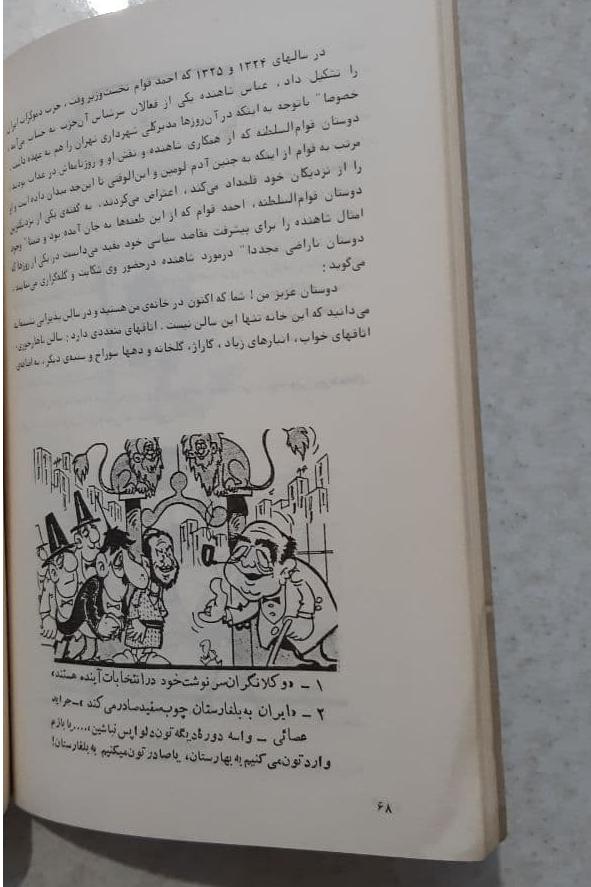 در سالهای ۱۳۲۴ و ۱۳۲۵ که احمد قوام نخست‌وزیر وقت، حزب دموکرات ایران
را تشکیل داد، عباس شاهنده یکی از فعالان سرشناس آن‌حزب به حساب می‌آمد،
خصوصا" باتوجه به اینکه در آن‌روزها مدیرکلی شهرداری تهران را هم به عهده داشت.
دوستان قوام‌السلطنه که از همکاری شاهنده و نقش او و روزنامه‌اش در عذاب بودند،
مرتب به قوام از اینکه به چنین آدم لومپن و ابن‌الوقتی تا این‌حد میدان داده است و او
را از نزدیکان خود قلمداد می‌کند، اعتراض می‌کردند. به گفته‌ی یکی از نزدیکترین
دوستان قوام‌السلطنه، احمد قوام که از این طعنه‌ها به جان آمده بود و ضمنا" وجود
امثال شاهنده را برای پیشرفت مقاصد سیاسی خود مفید می‌دانست در یکی از روزها که
دوستان ناراضی مجددا" درمورد شاهنده درحضور وی شکایت و گله‌گزاری می‌نمایند،
می‌گوید:
دوستان عزیز من! شما که اکنون در خانه‌ی من هستید و در سالن پذیرائی نشسته‌اید
می‌دانید که این خانه تنها این سالن نیست. اتاقهای متعددی دارد: سالن ناهارخوری،
اتاقهای خواب، انبارهای زیاد، گاراژ، گلخانه و دهها سوراخ و سنبه‌ی دیگر، به اضافه‌ی
۱ - «وکلا نگران سرنوشت خود در انتخابات آینده هستند»
۲ - «ایران به بلغارستان چوب سفید صادر می‌کند» - جراید
عصائی - واسه دوره دیگه تون دلواپس نباشین،... یا بازم
واردتون می کنیم به بهارستان، یا صادرتون میکنیم به بلغارستان!
۶۸